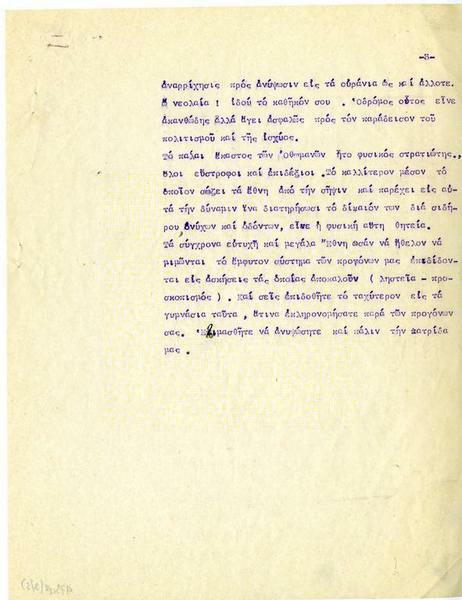 -8-
ἀναρρίχησις πρός ἀνύψωσιν εἰς τά οὐράνια ὡς καί ἄλλοτε.
Ὦ νεολαία ! ἰδού τό καθῆκόν σου . Ὁδρόμος οὗτος εἶνε
ἀκανθώδης ἀλλά ἄγει ἀσφαλῶς πρός τόν παράδεισον τοῦ
πολιτισμοῦ καί τῆς ἰσχύος.
Τό πάλαι ἕκαστος τῶν Ὀθωμανῶν ἦτο φυσικός στρατιώτης.,
ὅλοι εὔστροφοι καί ἐπιδέξιοι .Τό καλλίτερον μέσον τό
ὁποῖον σώζει τά ἔθνη ἀπό τήν σῆψιν καί παρέχει εἰς αὐ-
τά τήν δύναμιν ἵνα διατηρήσωσι τό δίκαιόν των διά σιδή-
ρου ὀνύχων καί ὀδόντων, εἶνε ἡ φυσική αὕτη θητεία.
Τά σύγχρονα εὐτυχῆ καί μεγάλα Ἔθνη ὡσάν νά ἤθελον νά
μιμῶνται τό ἔμφυτον σύστημα τῶν προγόνων μας ἐπιδίδον-
ται εἰς ἀσκήσεις τάς ὁποίας ἀποκαλοῦν ( ληστεία - προ-
σκοπισμός ) . Καί σεῖς ἐπιδοθῆτε τό ταχύτερον εἰς τά
γυμνάσια ταῦτα , ἅτινα ἐκληρονομήσατε παρά τῶν προγόνων
σας. νά ἀνυψώσητε καί πάλιν τήν πατρίδα
μας .